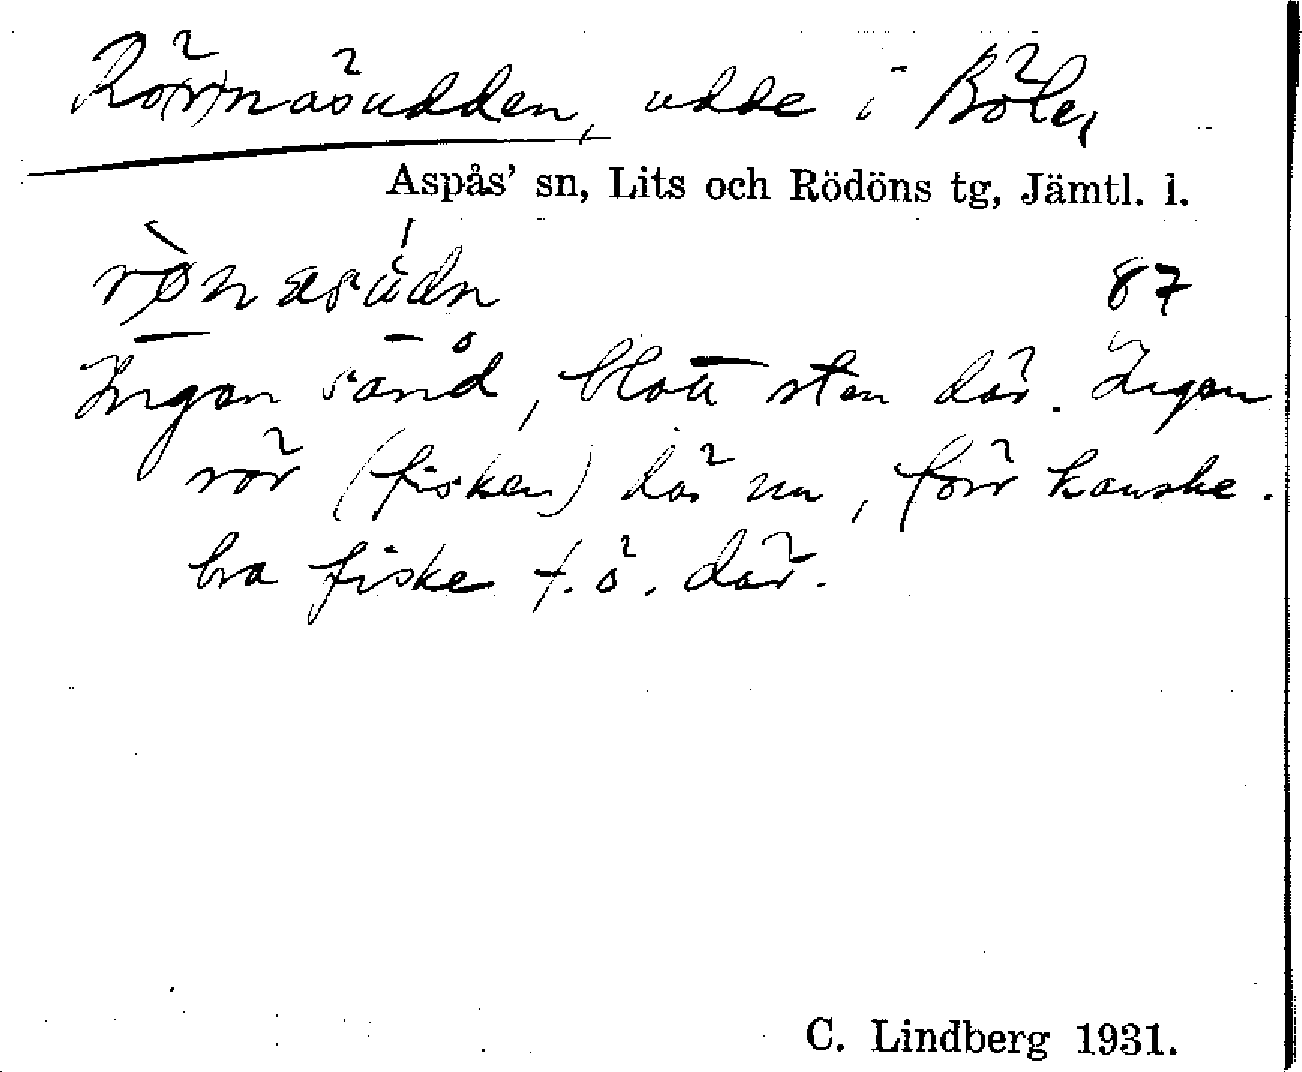 Rö(r)näsudden, udde i Böle,
Aspås' sn, Lits och Rödöns tg, Jämtl. l.
rø̀næsùdn 87
Ingen sand, blott sten där. Ingen
rör (fisken) där nu, förr kanske.
bra fiske f.ö. där.
C. Lindberg 1931.